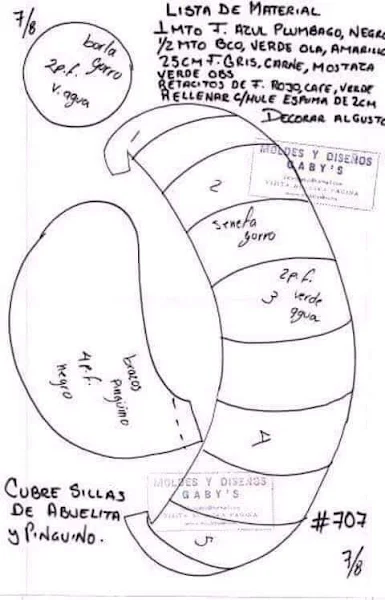 7/8
LISTA DE MATERIAL
1 MTO T. AZUL PLUMBAGO, NEGRO
1/2 MTO BCO, VERDE OLA, AMARILLO
25CM T. GRIS, CARNE, MOSTAZA
VERDE OBS
RETACITOS DE T. ROJO, CAFE, VERDE
RELLENAR C/HULE ESPUMA DE 2CM
DECORAR AL GUSTO
borla
gorro
2p.f.
v. agua
1
MOLDES Y DISEÑOS
GABY'S
2
seneta
gorro
2p.f.
3 verde
agua
brazos
pingüino
4p.f.
negro
4
MOLDES Y DISEÑOS
GABY'S
5
CUBRE SILLAS
DE ABUELITA
y PINGUINO.
#707
7/8